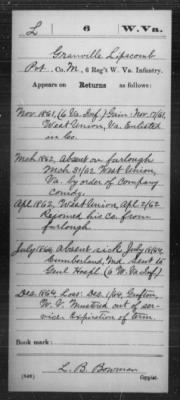 L 6 W.Va.
Granville Lipscomb
Pvt., Co. M, 6 Reg't W. Va. Infantry.
Appears on Returns as follows:
Nov. 1861, (6 Va. Inf.) Gain: Nov. 17/61,
West Union, Va. Enlisted
in Co.
Mch 1862, Absent on furlough
Mch 31/62 West Union,
Va. by order of Company
comdg.
Apl 1862, West Union, Apl 2/62
Rejoined his co. from
furlough
July 1864 Absent sick July 1864
Cumberland, Md sent to
Genl Hospl (6 W. Va Inf.)
Dec. 1864 Loss: Dec. 1/64, Grafton,
W. V. Mustered out of ser-
vice. Expiration of term
Book mark:
L. B. Bowman
(546) Copyist.